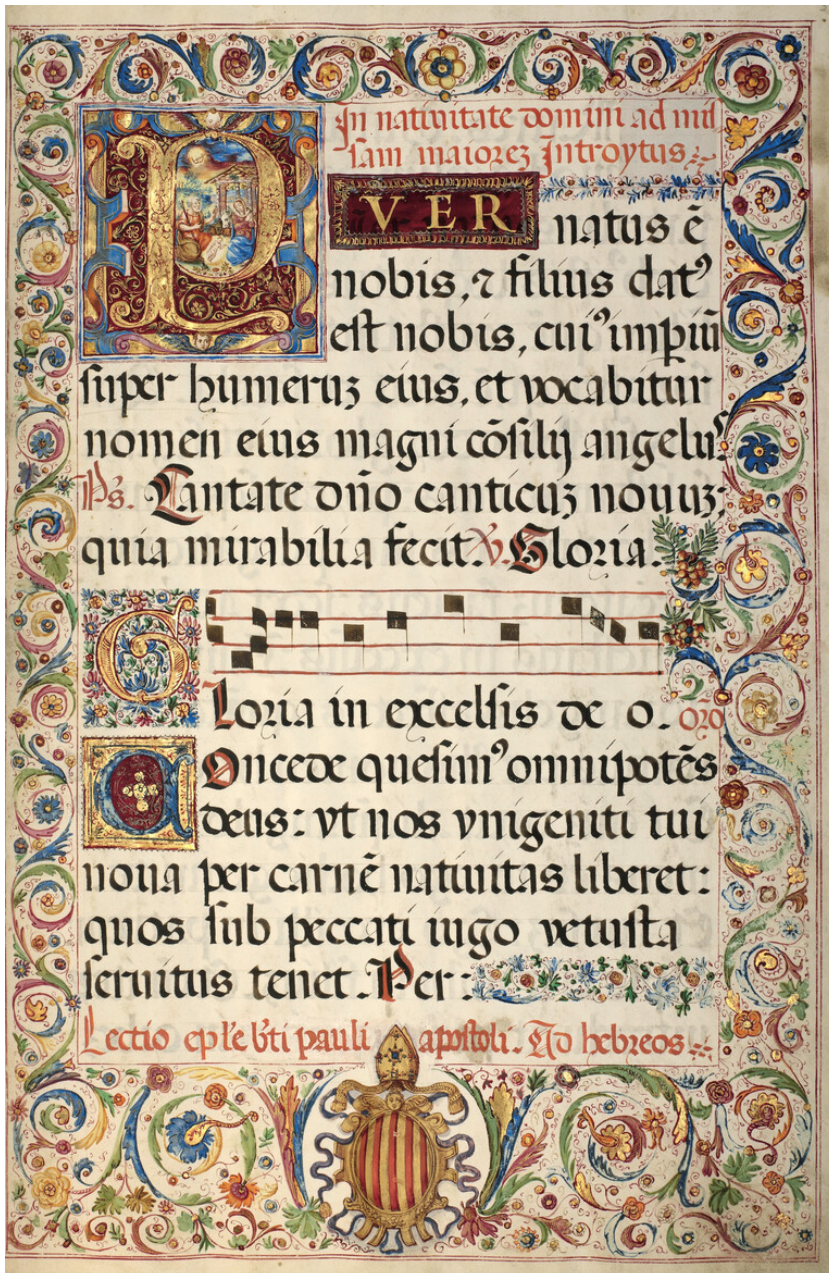 In natiuitate domini ad mis
sam maiorez Introytus
P VER
natus ē
nobis, ⁊ filius datꝰ
est nobis, cuiꝰ imp̄iū
super humeruʒ eius, et vocabitur
nomen eius magni cōsilij angelus.
Ps. Cantate dn̄o canticuʒ nouuʒ:
quia mirabilia fecit. V. Gloria.
G Loria in excelsis de o. oro
C Oncede quesimꝰ omnipotēs
deus: vt nos vnigeniti tui
noua per carnē natiuitas liberet:
quos sub peccati iugo vetusta
seruitus tenet. Per:
Lectio ep̄l'e b'ti pauli apostoli. Ad hebreos